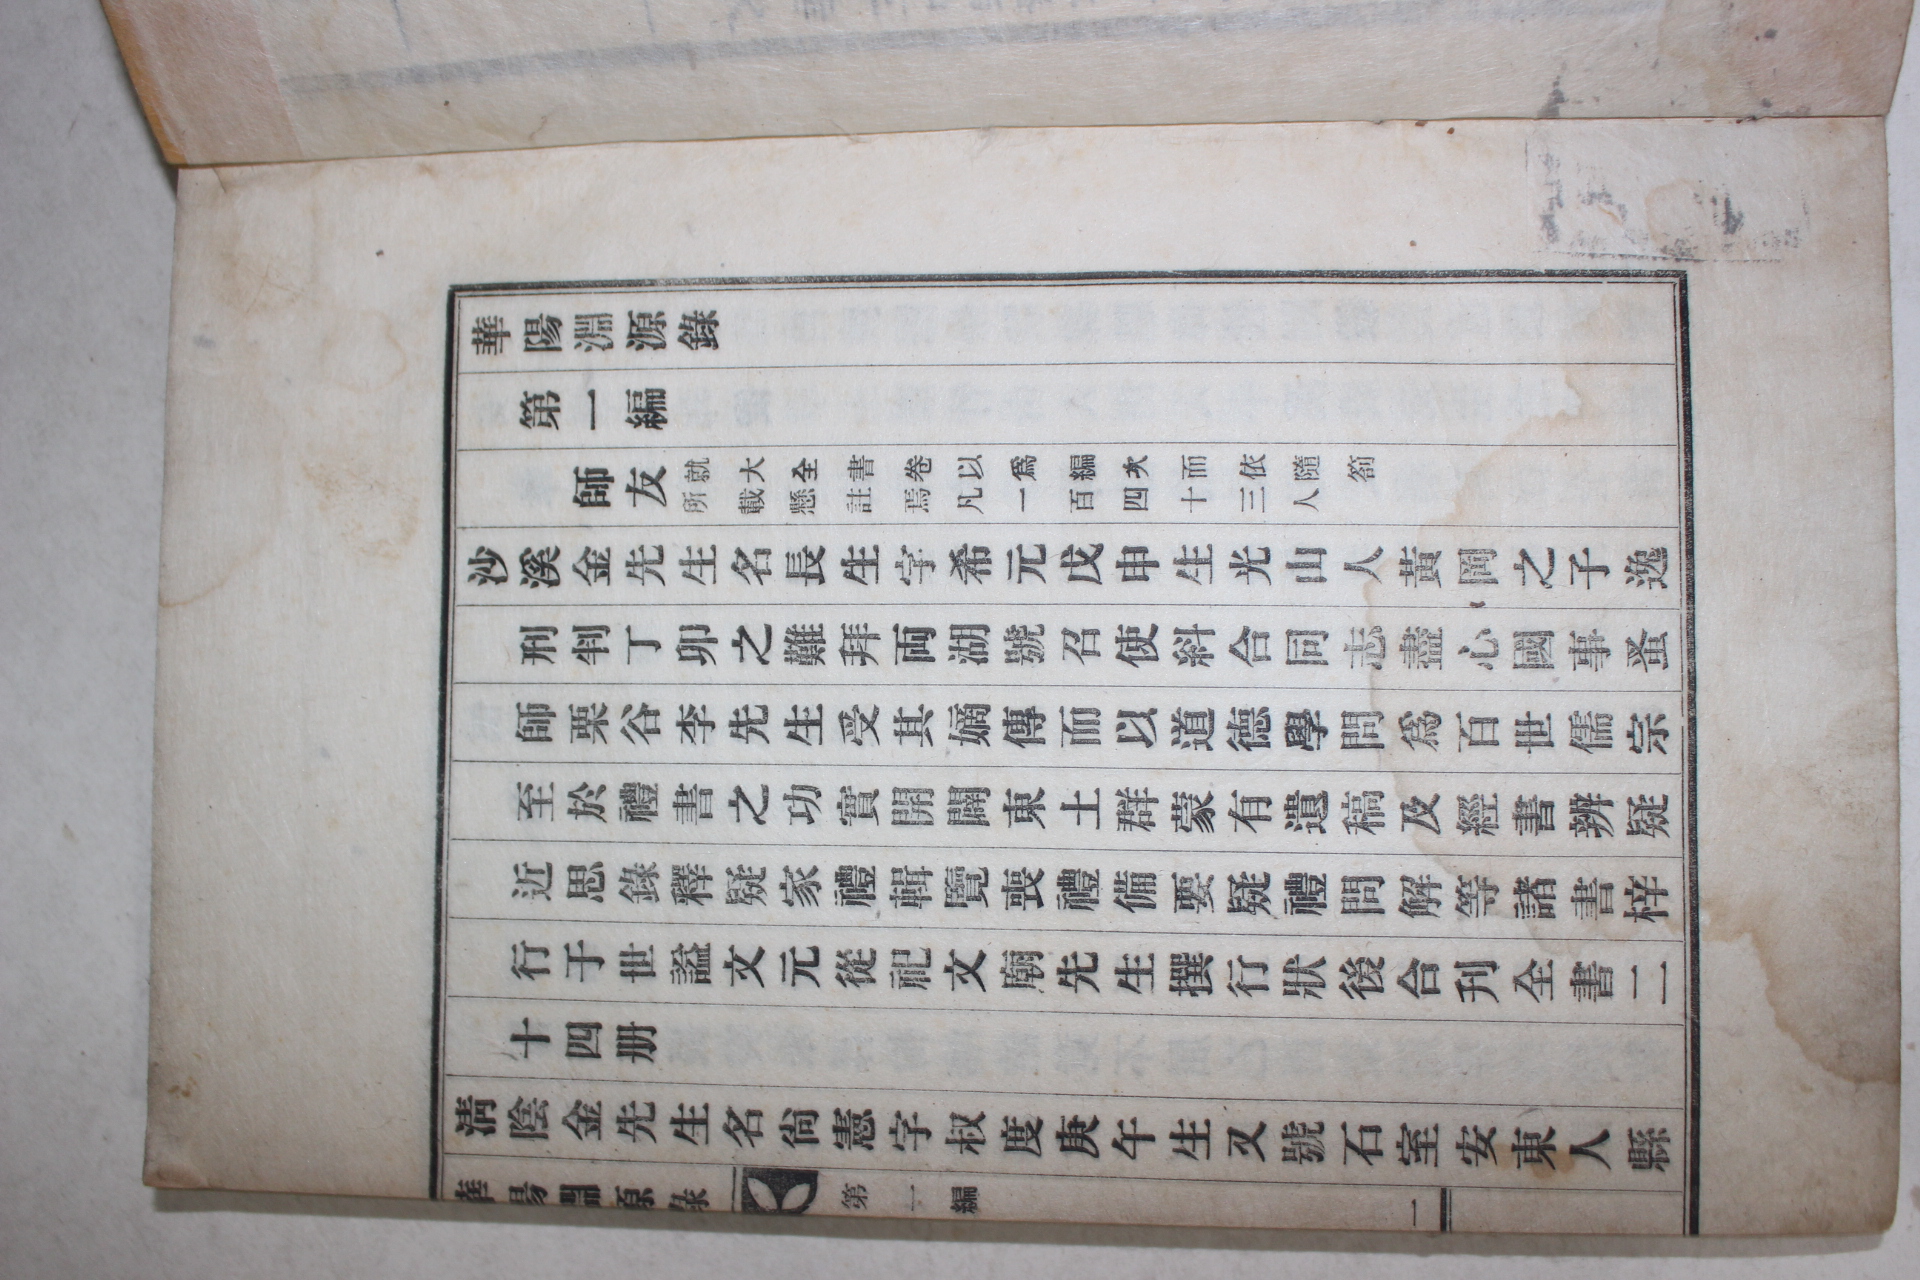 華陽淵源錄
第一編
師友
就大全書卷以爲編次而依隨箚
所載懸註焉凡一百四十三人
沙溪金先生名長生字希元戊申生光山人黃岡之子逸
刑判丁卯之難拜両湖號召使料合同志盡心國事蚤
師栗谷李先生受其嫡傳而以道德學問爲百世儒宗
至於禮書之功實開闢東土群蒙有遺稿及經書辨疑
近思錄釋疑家禮輯覽喪禮備要疑禮問解等諸書梓
行于世謚文元從祀文廟先生撰行狀後合刊全書二
十四册
淸陰金先生名尙憲字叔度庚午生又號石室安東人縣
華陽淵源錄 第一編 一